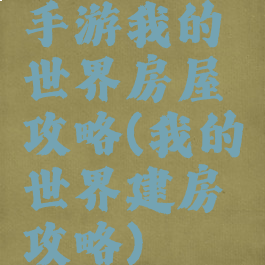 手游我的
世界房屋
攻略(我的
世界建房
攻略)